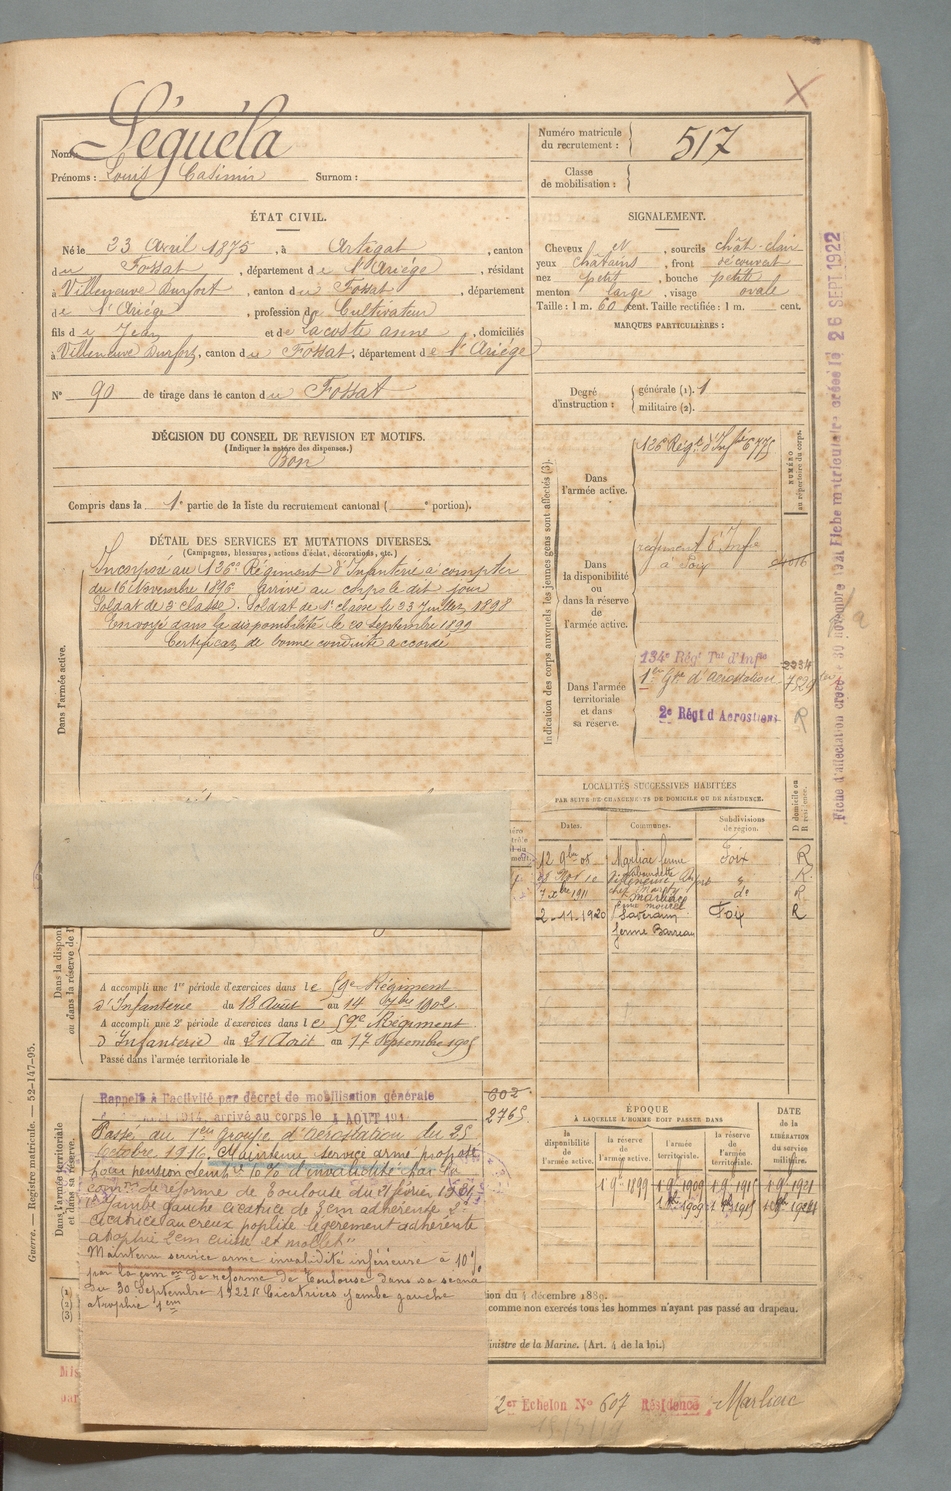 Nom : Séguéla
Prénoms : Louis Casimir Surnom :
Numéro matricule du recrutement : 517
Classe de mobilisation :
ÉTAT CIVIL.
Né le 23 Avril 1875, à Artigat, canton
du Fossat, département de l'Ariège, résidant
à Villeneuve Durfort, canton du Fossat, département
de l'Ariège, profession de Cultivateur
fils de Jean et de Lacoste anne, domiciliés
à Villeneuve Durfort, canton du Fossat, département de l'Ariège
N° 90 de tirage dans le canton du Fossat
SIGNALEMENT.
Cheveux et, sourcils chât-clair
yeux châtains, front découvert
nez petit, bouche petite
menton large, visage ovale
Taille : 1 m. 60 cent. Taille rectifiée : 1 m. cent.
MARQUES PARTICULIÈRES :
Degré d'instruction : générale (1). 1
militaire (2).
DÉCISION DU CONSEIL DE REVISION ET MOTIFS.
(Indiquer la nature des dispenses.)
Bon
Compris dans la 1e partie de la liste du recrutement cantonal ( e portion).
DÉTAIL DES SERVICES ET MUTATIONS DIVERSES.
(Campagnes, blessures, actions d'éclat, décorations, etc.)
Dans l'armée active.
Incorporé au 126e Régiment d'Infanterie à compter
du 16 Novembre 1896 arrivé au corps le dit jour
Soldat de 2e classe. Soldat de 1e classe le 23 Juillet 1898
Envoyé dans la disponibilité le 20 septembre 1899
Certificat de bonne conduite accordé
Indication des corps auxquels les jeunes gens sont affectés (3).
NUMÉRO au répertoire du corps.
Dans l'armée active.
126 Régt d'Infie 6775
Dans la disponibilité ou dans la réserve de l'armée active.
régiment d'Infie
à Foix
Dans l'armée territoriale et dans sa réserve.
134e Régt Tal d'Infie
1er Gpe d'aérostation
2e Régt d'Aerostiers
R
Fiche matriculaire créée le 26 SEPT. 1922
LOCALITÉS SUCCESSIVES HABITÉES
PAR SUITE DE CHANGEMENTS DE DOMICILE OU DE RÉSIDENCE.
Dates. Communes. Subdivisions de région. D domicile ou R résidence.
12 9bre 05 Marliac ferme Foix R
7 xbre 1911 Marliac do R
2-11-1920 Saverdun Foix R
ferme Barreau
A accompli une 1re période d'exercices dans le 59e Régiment
d'Infanterie du 18 Août au 14 7bre 1902
A accompli une 2e période d'exercices dans le 59e Régiment
d'Infanterie du 21 Août au 17 Septembre 1905
Passé dans l'armée territoriale le
Dans l'armée territoriale et dans sa réserve.
Rappelé à l'activité par décret de mobilisation générale
1914, arrivé au corps le 4 AOUT 191
602
2765
Passé au 1er groupe d'aérostation du 25
Octobre 1916. Maintenu service armé proposé
pour pension temp re 10 % d'invalidité par la
comon de réforme de Toulouse du 21 février 1921
1° Jambe gauche cicatrice de 3cm adhérente 2°
cicatrice au creux poplité légèrement adhérente
atrophie 2cm cuisse et mollet"
Maintenu service armé invalidité inférieure à 10 %
par la comon de réforme de Toulouse dans sa séance
du 30 Septembre 1922 "Cicatrices jambe gauche
atrophie 1cm
ÉPOQUE
À LAQUELLE L'HOMME DOIT PASSER DANS
la disponibilité de l'armée active.
la réserve de l'armée active.
l'armée territoriale.
la réserve de l'armée territoriale.
DATE de la LIBÉRATION DU SERVICE militaire.
Guerre. — Registre matricule. — 52-147-95.
(1)
(2)
(3)
tion du 4 décembre 1889.
comme non exercés tous les hommes n'ayant pas passé au drapeau.
inistre de la Marine. (Art. 4 de la loi.)
2er Echelon N° 607 Résidence Marliac